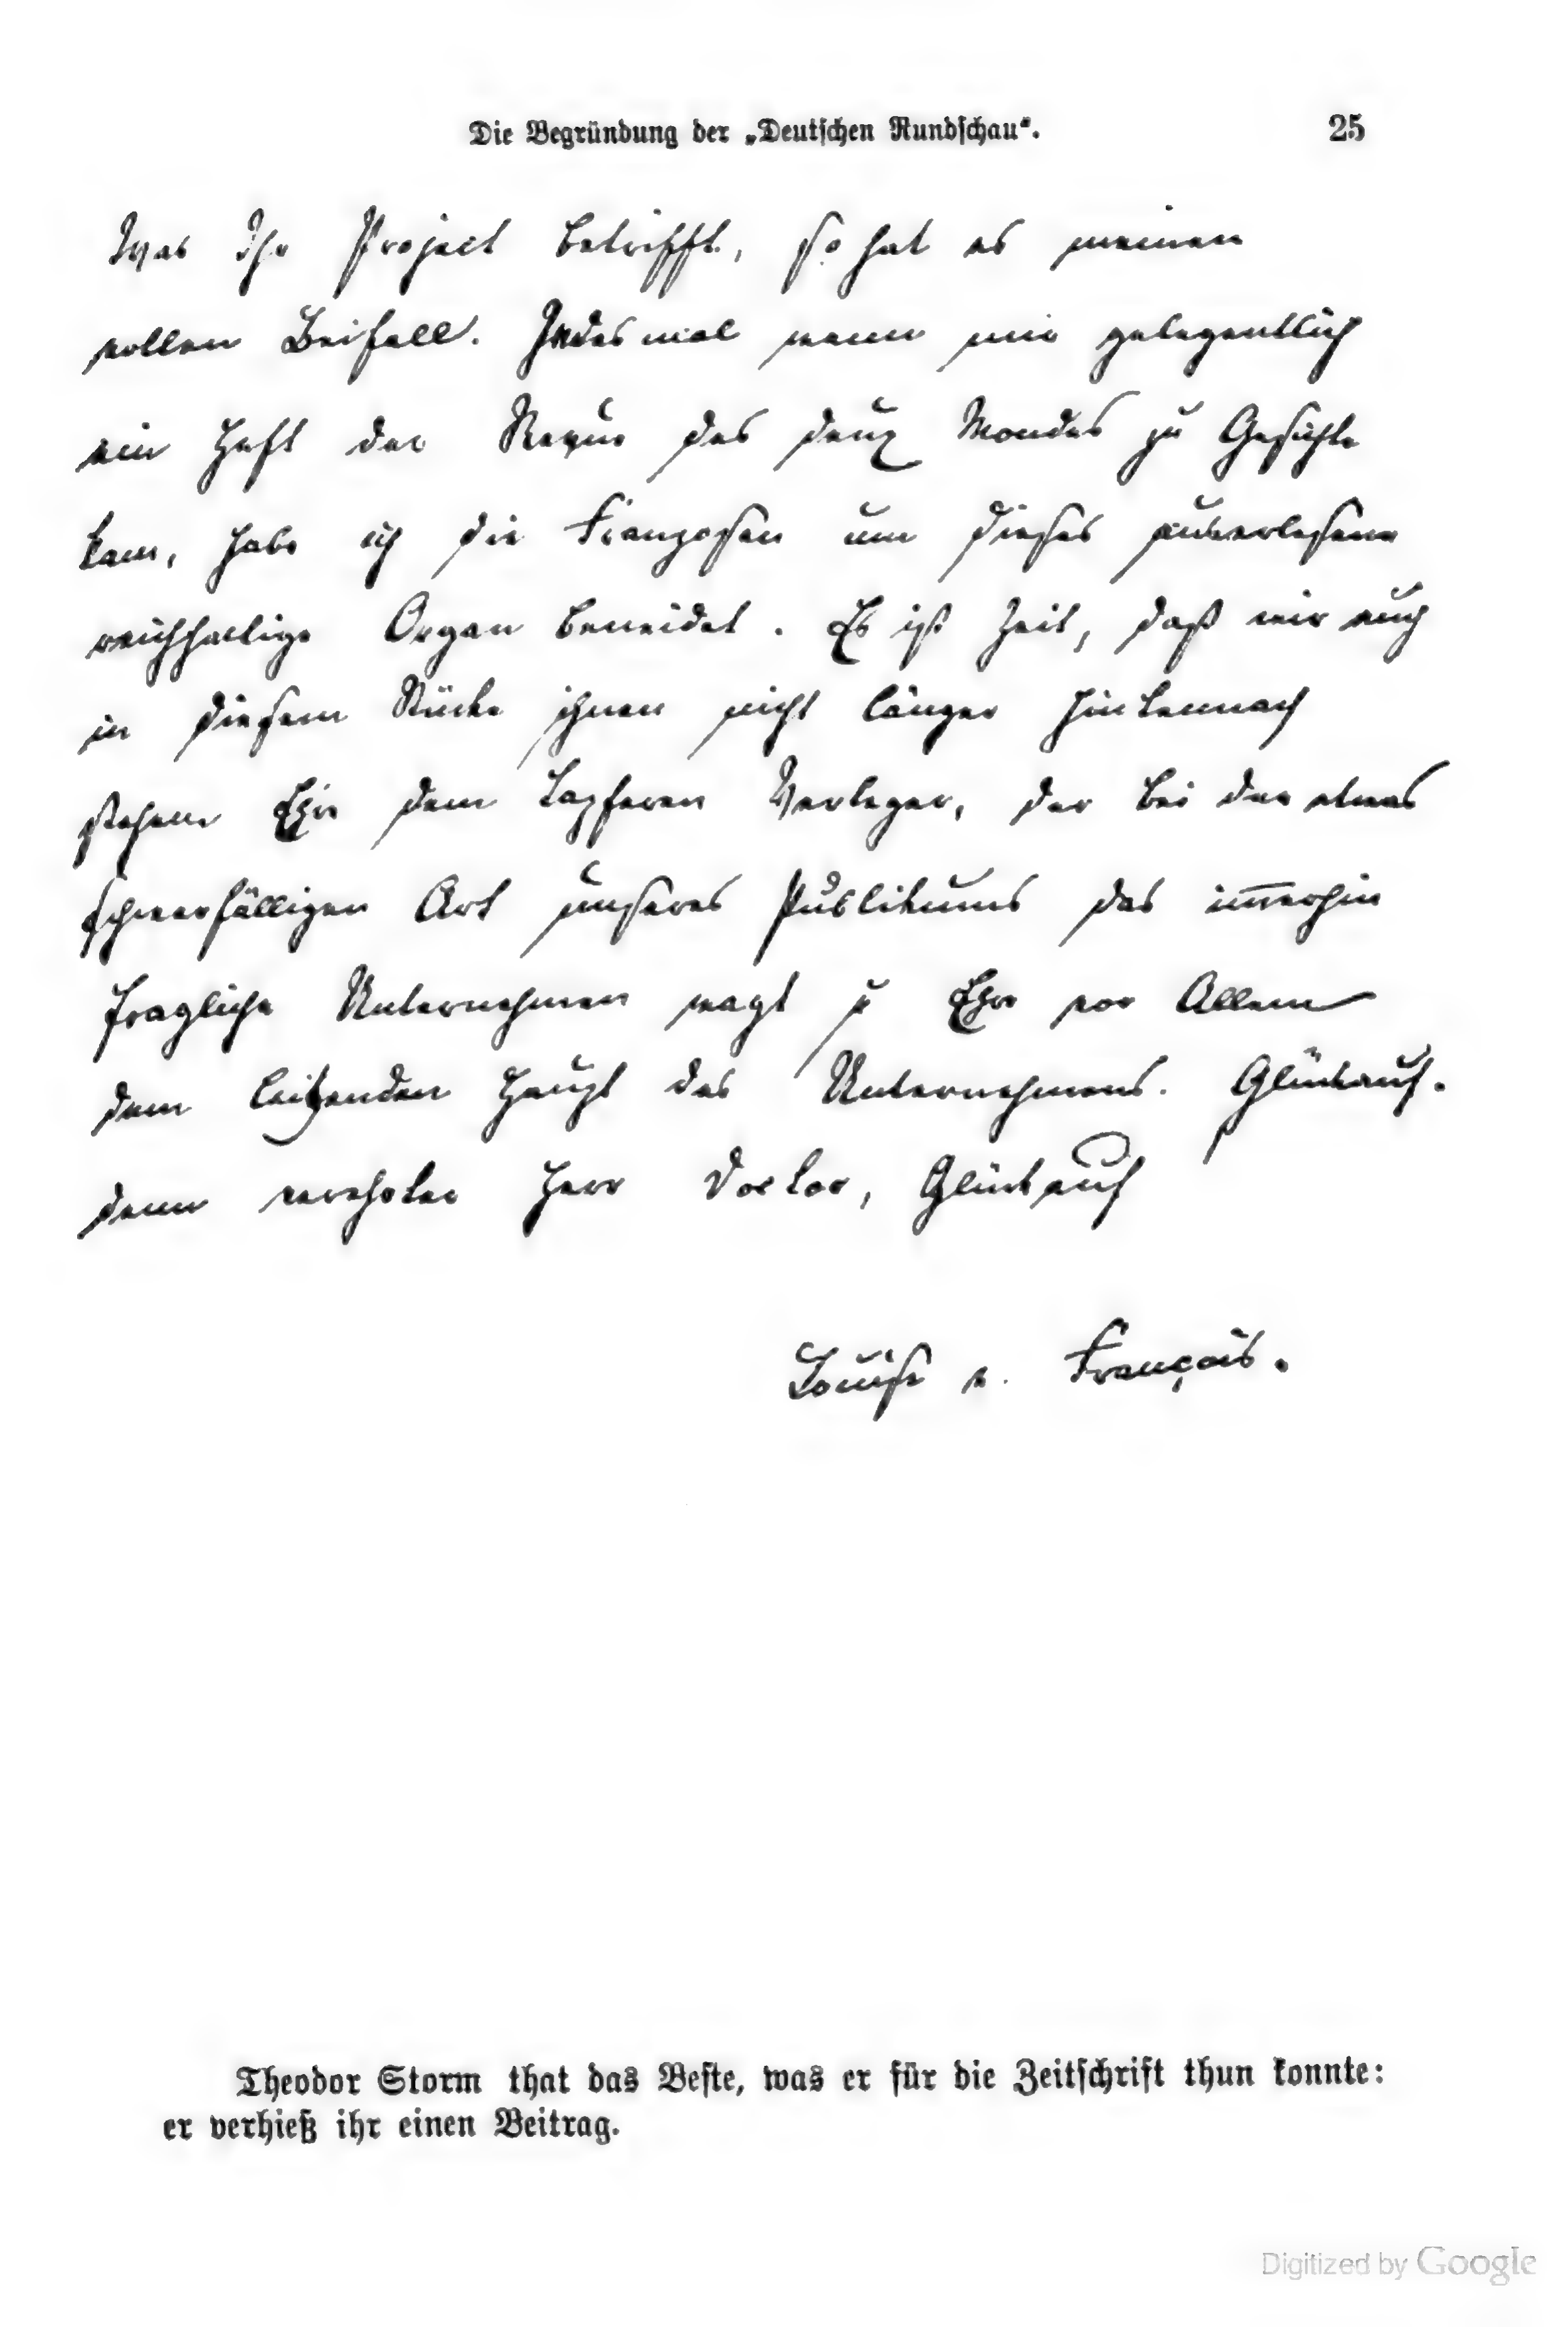 Die Begründung der „Deutschen Rundschau“. 25
Was Ihr Project betrifft, so hat es meinen
vollen Beifall. Jedesmal wenn mir gelegentlich
ein Heft der Revue des deux Mondes zu Gesichte
kam, habe ich die Franzosen um dieses auserlesene
reichhaltige Organ beneidet. Es ist Zeit, daß wir auch
in diesem Stücke ihnen nicht länger hintennach
stehen Ehre dem tapferen Verleger, der bei der etwas
schwerfälligen Art unseres Publikums das im̅erhin
fragliche Unternehmen wagt u Ehre vor Allem
dem leitenden Haupt des Unternehmens. Glückauf.
denn verehrter Herr Doctor, Glückauf
Louise v. François.
Theodor Storm that das Beste, was er für die Zeitschrift thun konnte:
er verhieß ihr einen Beitrag.
Digitized by Google